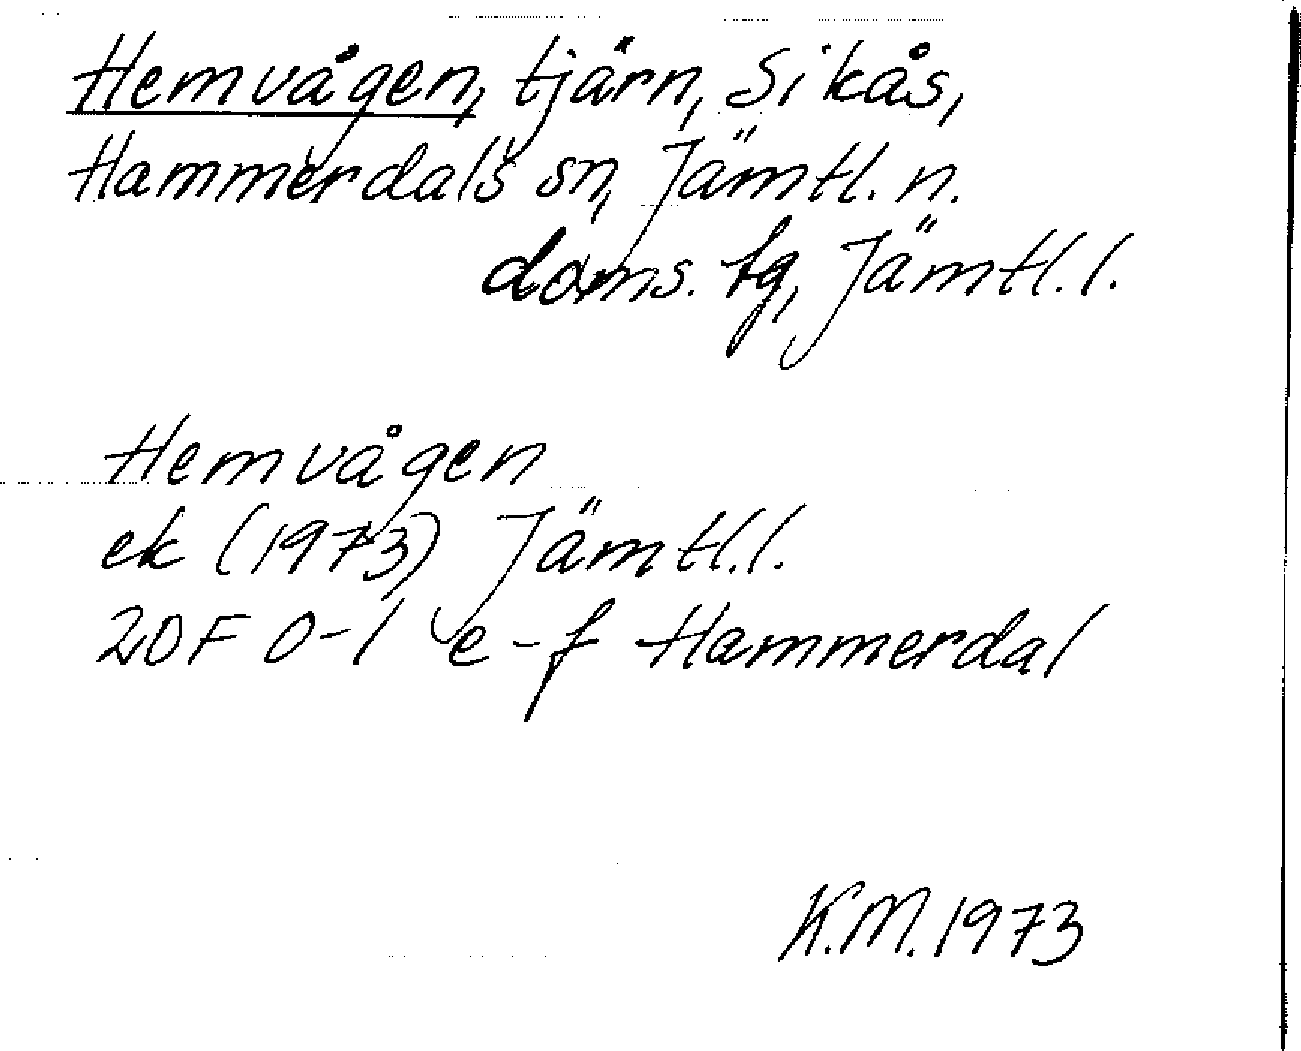 Hemvågen, tjärn, Sikås,
Hammerdals sn, Jämtl. n.
doms. tg, Jämtl. l.
Hemvågen
ek (1973) Jämtl. l.
20F 0-1 e-f Hammerdal
K.M. 1973